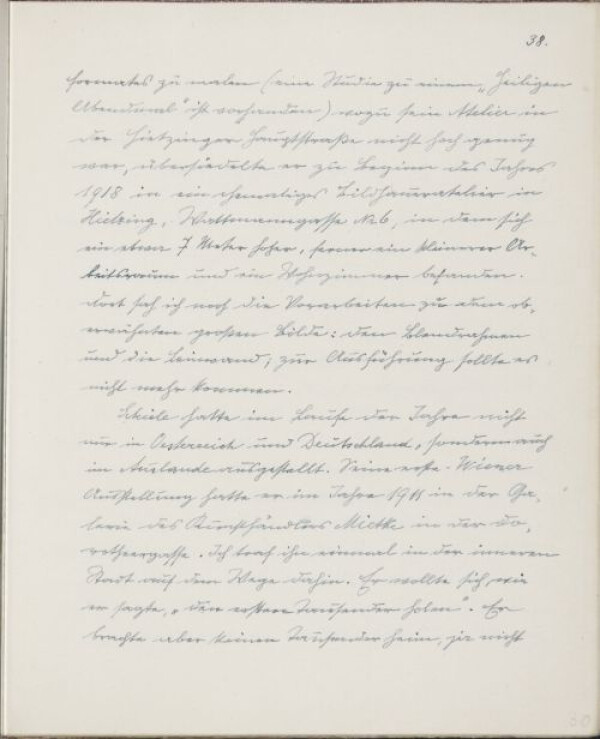 38.
formates zu malen (eine Studie zu einem „Heiligen
Abendmal" ist vorhanden) wozu sein Atelier in
der Hietzinger Hauptstraße nicht hoch genug
war, übersiedelte er zu Beginn des Jahres
1918 in ein ehemaliges Bildhaueratelier in
Hietzing, Wattmanngasse No 6, in dem sich
ein etwa 7 Meter hoher, ferner ein kleinerer Ar-
beitsraum und ein Wohnzimmer befanden.
Dort sah ich noch die Vorarbeiten zu dem ob-
erwähnten großen Bilde: den Blendrahmen
und die Leinwand; zur Ausführung sollte es
nicht mehr kommen.
Schiele hatte im Laufe der Jahre nicht
nur in Oesterreich und Deutschland, sondern auch
im Auslande ausgestellt. Seine erste Wiener
Ausstellung hatte er im Jahre 1911 in der Ga-
lerie des Kunsthändlers Miethke in der Do-
rotheergasse. Ich traf ihn einmal in der inneren
Stadt auf dem Wege dahin. Er wollte sich, wie
er sagte, „den ersten Tausender holen". Er
brachte aber keinen Tausender heim, ja nicht
30